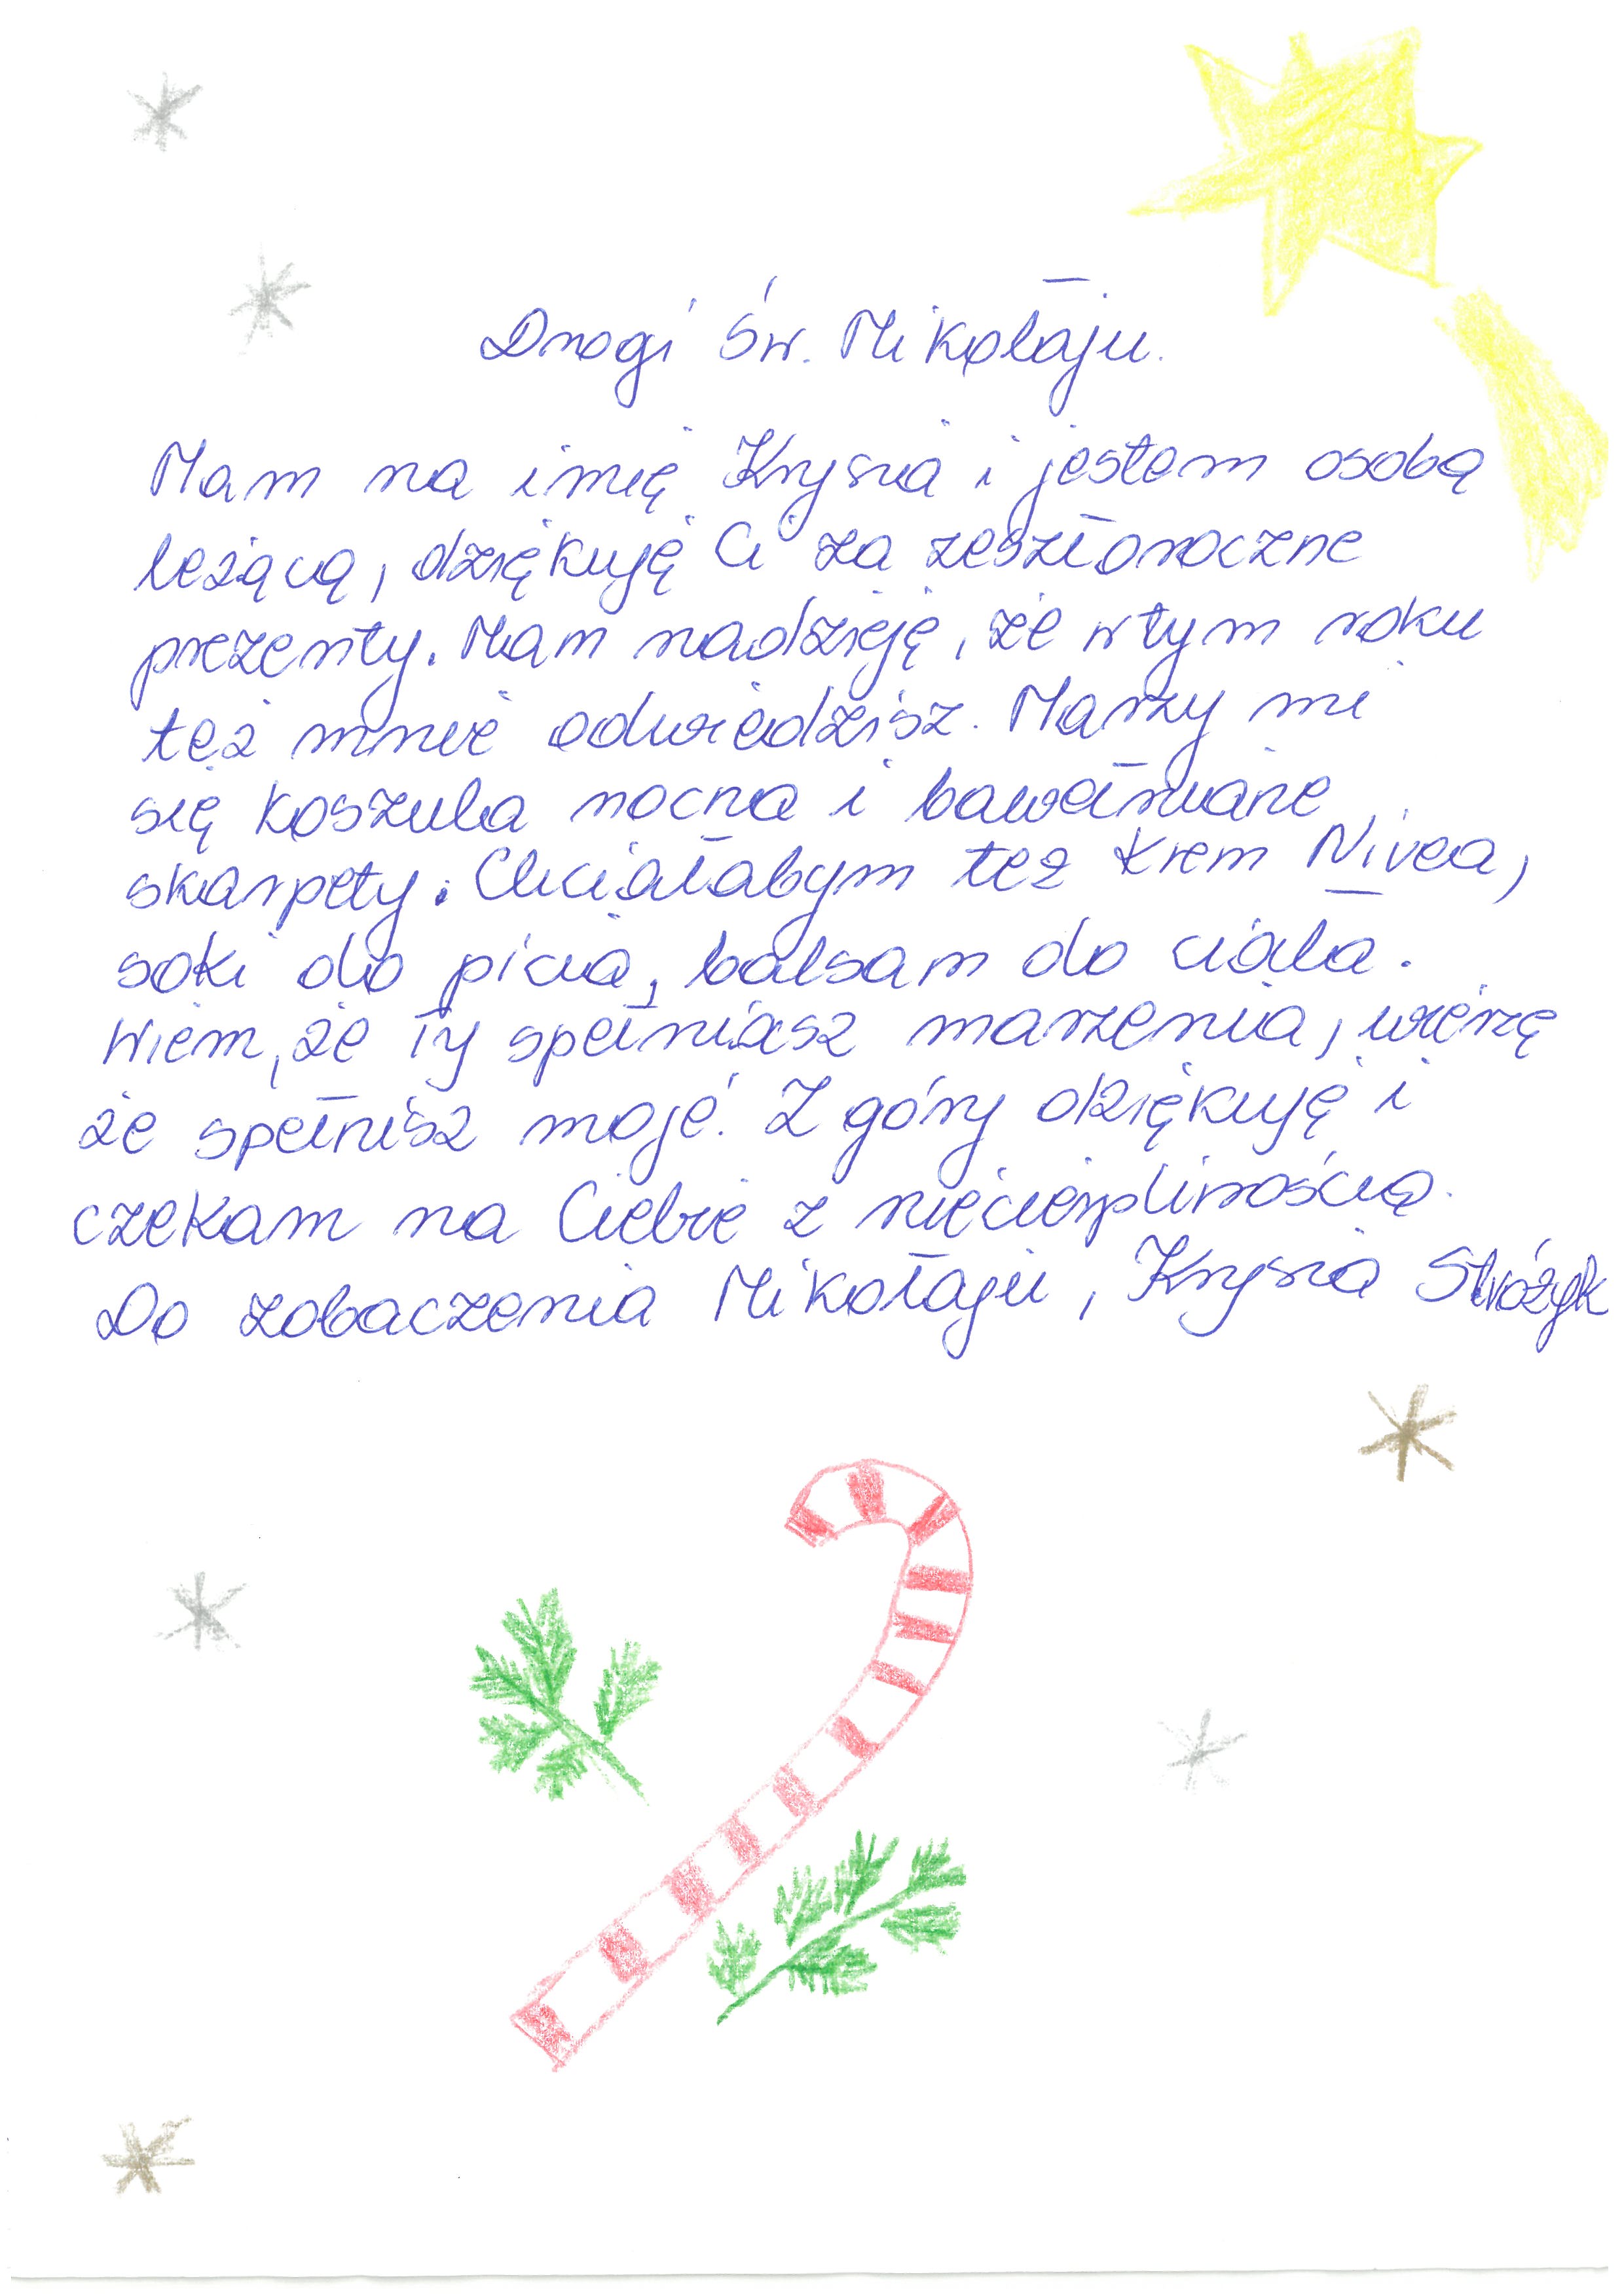 Drogi Św. Mikołaju.
Mam na imię Krysia i jestem osobą
leżącą, dziękuję Ci za zeszłoroczne
prezenty. Mam nadzieję, że w tym roku
też mnie odwiedzisz. Marzy mi
się koszula nocna i bawełniane
skarpety. Chciałabym też krem Nivea,
soki do picia, balsam do ciała.
Wiem, że Ty spełniasz marzenia, wierzę
że spełnisz moje. Z góry dziękuję i
czekam na Ciebie z niecierpliwością.
Do zobaczenia Mikołaju, Krysia Stróżyk